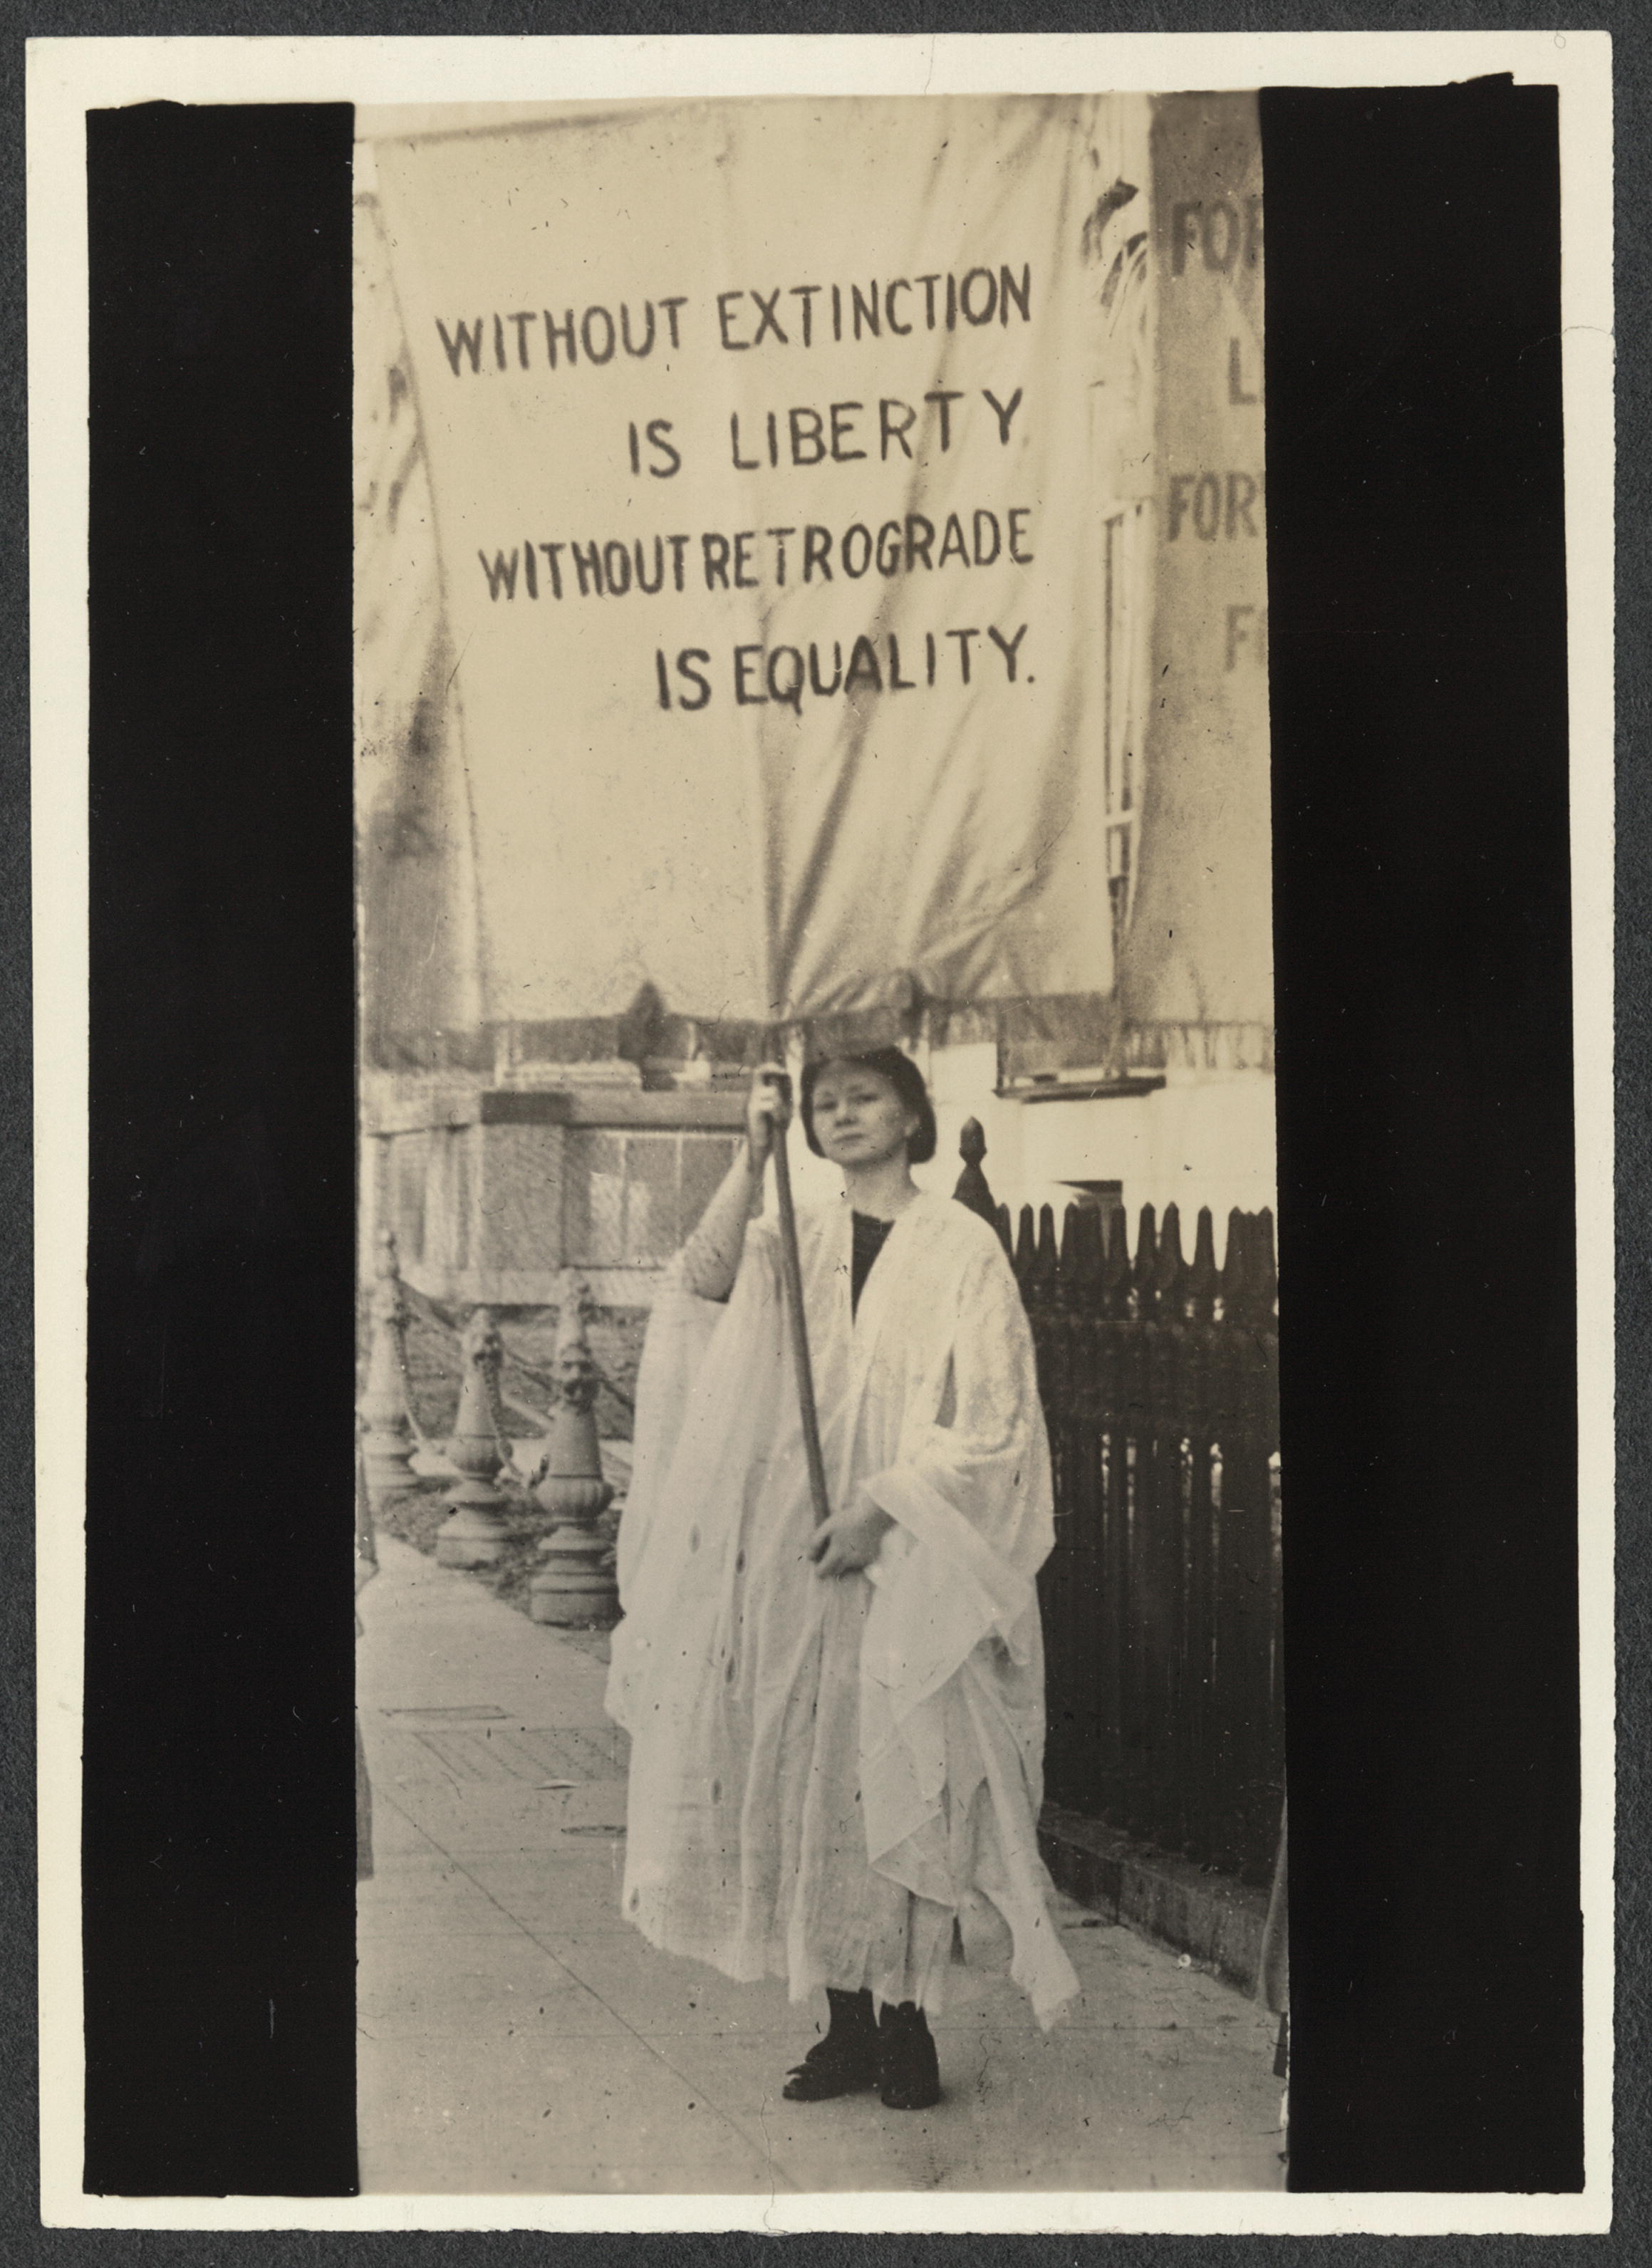 WITHOUT EXTINCTION
IS LIBERTY
WITHOUT RETROGRADE
IS EQUALITY.
FOR
L
FOR
F